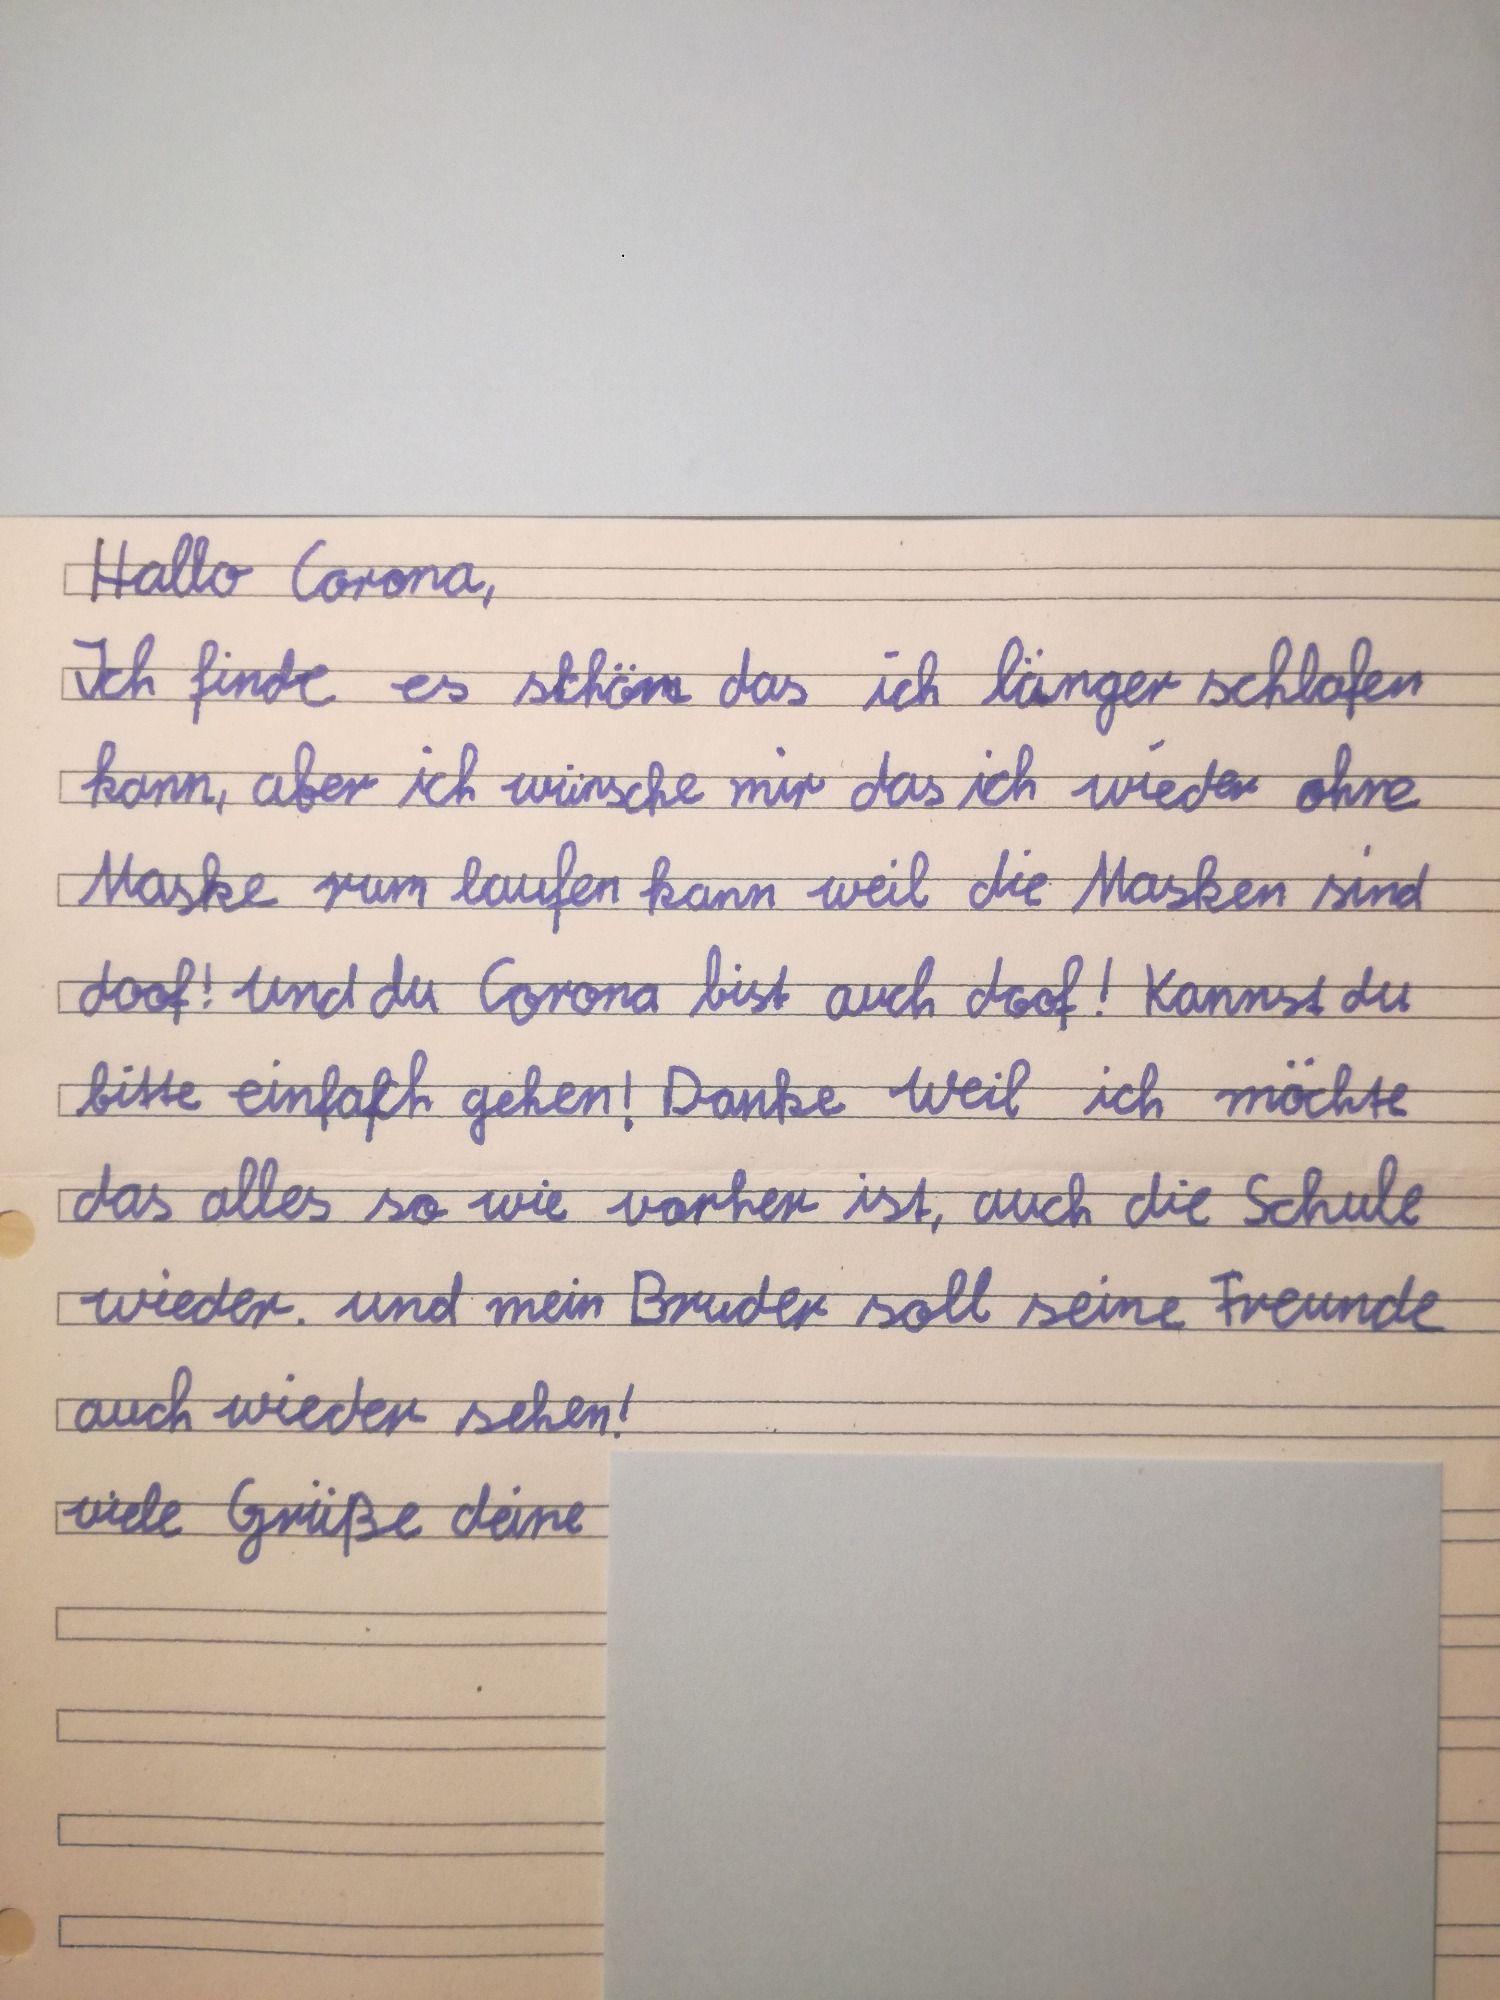 Hallo Corona,
Ich finde es schön das ich länger schlafen
kann, aber ich wünsche mir das ich wieder ohne
Maske rum laufen kann weil die Masken sind
doof! und du Corona bist auch doof! Kannst du
bitte einfach gehen! Danke Weil ich möchte
das alles so wie vorher ist, auch die Schule
wieder. und mein Bruder soll seine Freunde
auch wieder sehen!
viele Grüße deine